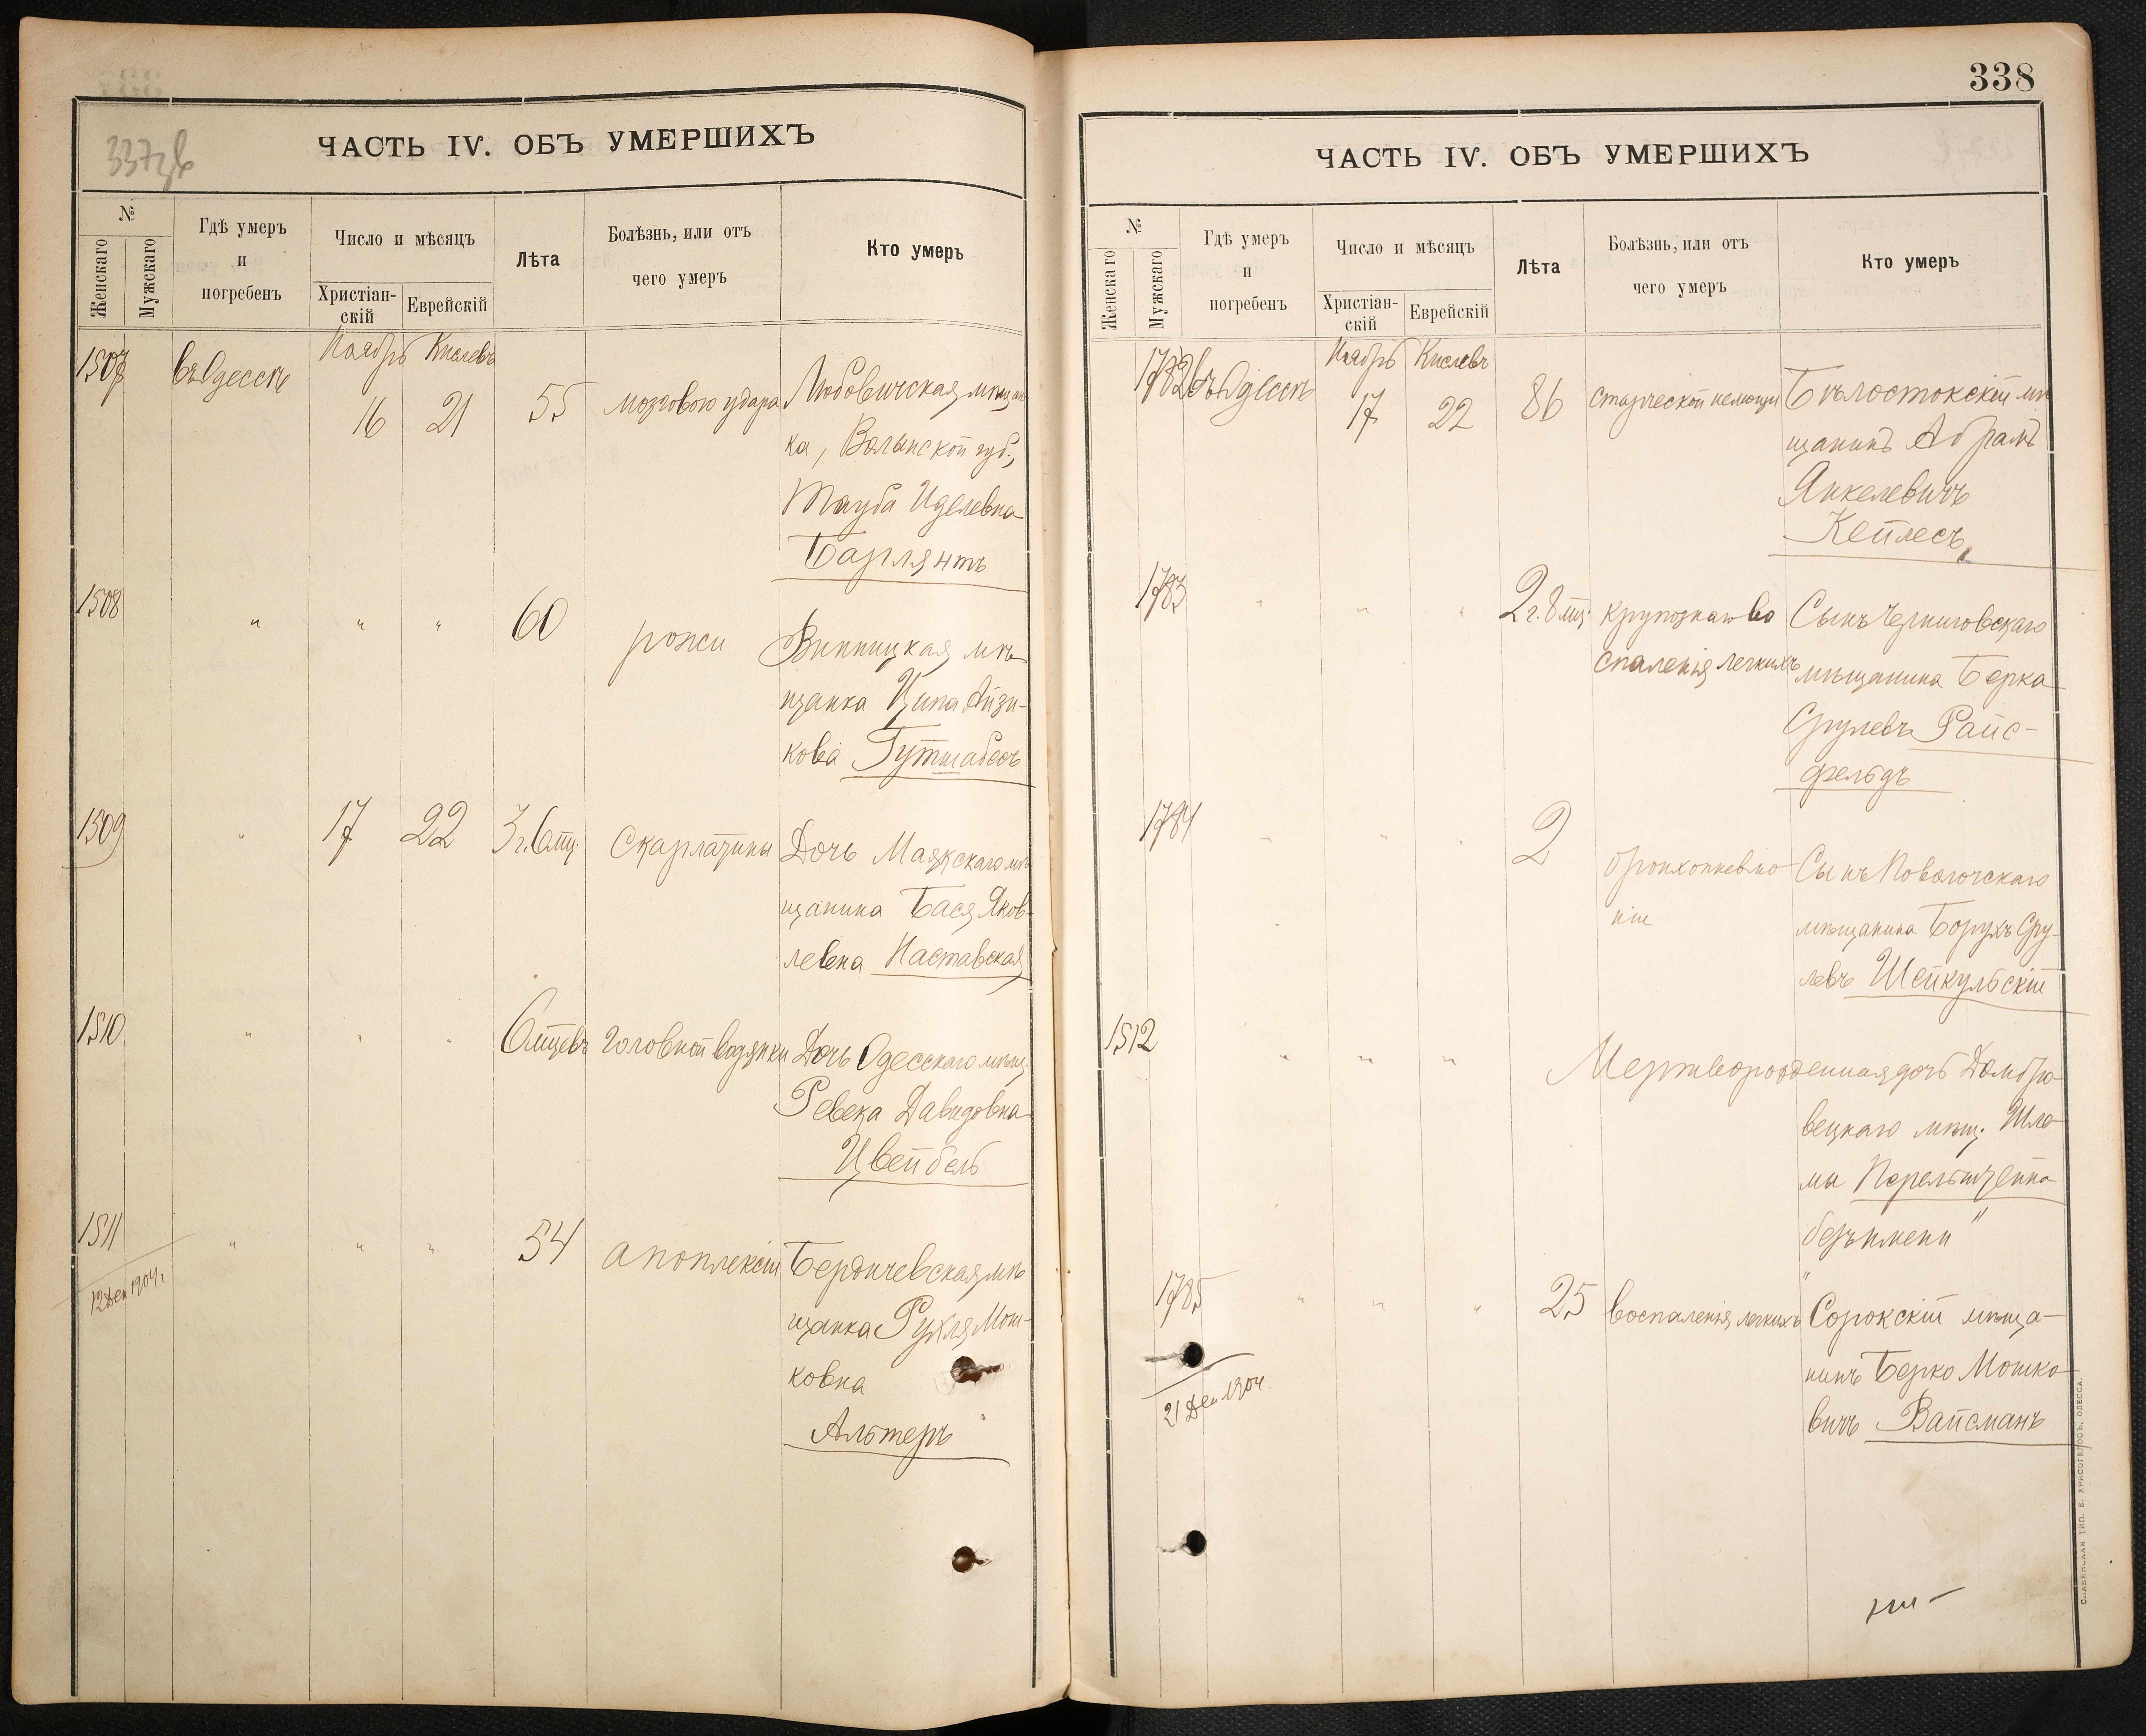 337 об
ЧАСТЬ IV. ОБЪ УМЕРШИХЪ
№
Женскаго
Мужскаго
Гдѣ умеръ
и
погребенъ
Число и мѣсяцъ
Христіан-
скій
Еврейскій
Лѣта
Болѣзнь, или отъ
чего умеръ
Кто умеръ
Ноябрь Кислевъ
1507 въ Одессѣ 16 21 55 мозгового удара
ка, Волынской губ.,
Тауба Иделевна
Барлянтъ
1508 " " " 60 рожи Винницкая мѣ-
щанка Ципа Айзи-
кова Гутшабесъ
1509 " 17 22 3 г. 6 мц. Скарлатины Дочь Маякскаго мѣ
щанина Бася Яков-
левна Наставская
1510 " " " 6 мцевъ головной водянки Дочь Одесскаго мѣщ.
Ревека Давидовна
Цвейбель
1511 " " " 54 апоплексіи Бердичевская мѣ
щанка Рухля Мош-
ковна
Альтеръ
12 Дек 1904 г.
338
ЧАСТЬ IV. ОБЪ УМЕРШИХЪ
№
Женскаго
Мужскаго
Гдѣ умеръ
и
погребенъ
Число и мѣсяцъ
Христіан-
скій
Еврейскій
Лѣта
Болѣзнь, или отъ
чего умеръ
Кто умеръ
Ноябрь Кислевъ
1782 въ Одессѣ 17 22 86 старческой немощи Бѣлостокскій мѣ
щанинъ Абрамъ
Янкелевичъ
Кейлесъ
1783 " " " 2 г. 8 мц. крупознаго во Сынъ Черниговскаго
спаленія легкихъ мѣщанина Берка
Срулевъ Райс-
фельдъ
1784 " " " 2 бронхопневмо Сынъ
ніи мѣщанина Борухъ Сру-
левъ Шейкульскій
1512 " " " Мертворожденная дочь Домбро-
вецкаго мѣщ. Шло-
мы Перельштейна
безъ имени"
1785 " " " 25 воспаленія легкихъ Сорокскій мѣща-
нинъ Берко Мошко-
вичъ Вайсманъ
21 Дек 1904
СЛАВЯНСКАЯ ТИП. Е. ХРИСОГЕЛОСЪ, ОДЕССА.